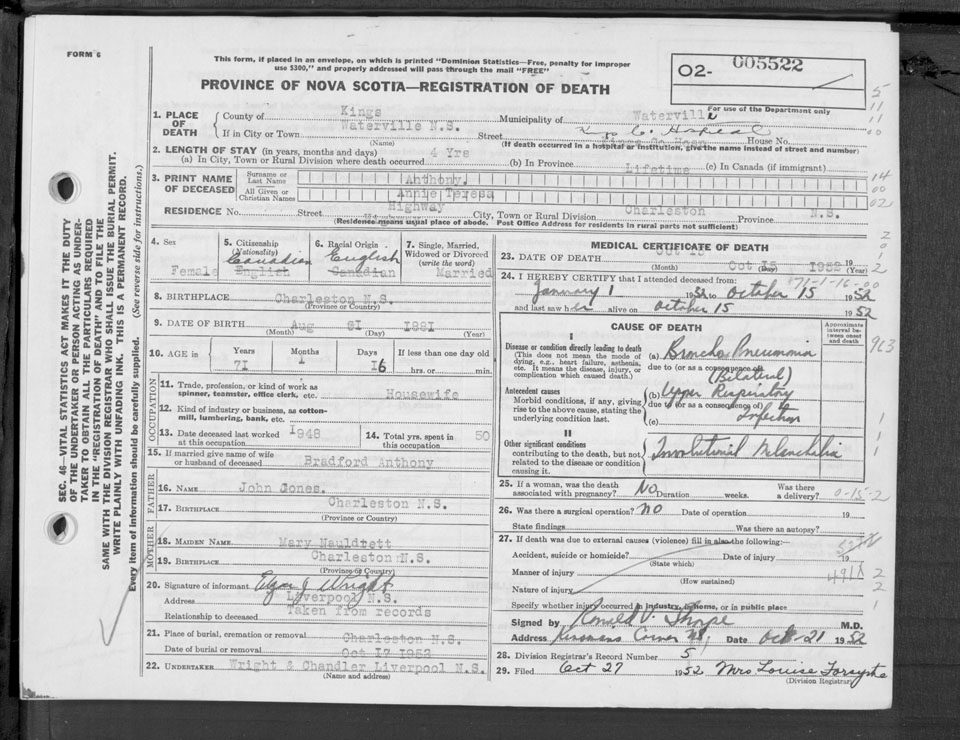 FORM 6
This form, if placed in an envelope, on which is printed "Dominion Statistics—Free, penalty for improper
use $300," and properly addressed will pass through the mail "FREE"
PROVINCE OF NOVA SCOTIA—REGISTRATION OF DEATH
O2- 005522
For use of the Department only
SEC. 46—VITAL STATISTICS ACT MAKES IT THE DUTY
OF THE UNDERTAKER OR PERSON ACTING AS UNDER-
TAKER TO OBTAIN ALL THE PARTICULARS REQUIRED
IN THE "REGISTRATION OF DEATH" AND TO FILE THE
SAME WITH THE DIVISION REGISTRAR WHO SHALL ISSUE THE BURIAL PERMIT.
WRITE PLAINLY WITH UNFADING INK. THIS IS A PERMANENT RECORD.
Every item of information should be carefully supplied. (See reverse side for instructions.)
1. PLACE OF DEATH County of Kings Municipality of Waterville
If in City or Town Waterville N.S. Street House No.
(Name) (If death occurred in a hospital or institution, give the name instead of street and number)
2. LENGTH OF STAY (in years, months and days)
(a) In City, Town or Rural Division where death occurred 4 Yrs (b) In Province Lifetime (c) In Canada (if immigrant)
3. PRINT NAME OF DECEASED Surname or Last Name Anthony.
All Given or Christian Names Annie Teresa
RESIDENCE No. Street Highway City, Town or Rural Division Charleston Province N.S.
(Residence means usual place of abode. Post Office Address for residents in rural parts not sufficient)
4. Sex Female
5. Citizenship (Nationality) Canadian English
6. Racial Origin English Canadian
7. Single, Married, Widowed or Divorced (write the word) Married
8. BIRTHPLACE Charleston N.S.
9. DATE OF BIRTH Aug 31 1881
(Month) (Day) (Year)
10. AGE in Years Months Days If less than one day old
71 1 16 hrs. or min.
OCCUPATION
11. Trade, profession, or kind of work as spinner, teamster, office clerk, etc. Housewife
12. Kind of industry or business, as cotton-mill, lumbering, bank, etc.
13. Date deceased last worked at this occupation 1948 14. Total yrs. spent in this occupation 50
15. If married give name of wife or husband of deceased Bradford Anthony
FATHER
16. NAME John Jones.
17. BIRTHPLACE Charleston N.S.
(Province or Country)
MOTHER
18. MAIDEN NAME Mary
19. BIRTHPLACE Charleston N.S.
(Province or Country)
20. Signature of informant Wright
Address Liverpool N.S.
Relationship to deceased Taken from records
21. Place of burial, cremation or removal Charleston N.S.
Date of burial or removal Oct 17 1952
22. UNDERTAKER Wright & Chandler Liverpool N.S.
(Name and address)
MEDICAL CERTIFICATE OF DEATH
23. DATE OF DEATH Oct 15 Oct 15 1952 19
(Month) (Day) (Year)
24. I HEREBY CERTIFY that I attended deceased from:
71-1-16-00
January 1 1952 to October 15 1952
and last saw her alive on October 15 1952
CAUSE OF DEATH
Approximate interval between onset and death
I
Disease or condition directly leading to death
(This does not mean the mode of dying, e.g., heart failure, asthenia, etc. It means the disease, injury, or complication which caused death.)
(a) Broncho Pneumonia
due to (or as a consequence of)
(Bilateral)
Antecedent causes
Morbid conditions, if any, giving rise to the above cause, stating the underlying condition last.
(b) Upper Respiratory
due to (or as a consequence of)
Infection
(c)
II
Other significant conditions
contributing to the death, but not related to the disease or condition causing it.
Involutional Melancholia
25. If a woman, was the death associated with pregnancy? No Duration weeks. Was there a delivery? 0-15-2
26. Was there a surgical operation? no Date of operation 19
State findings Was there an autopsy?
27. If death was due to external causes (violence) fill in also the following:
Accident, suicide or homicide? Date of injury 19
(State which)
Manner of injury 491X
(How sustained)
Nature of injury
Specify whether injury occurred in industry, in home, or in public place
Signed by Ronald V. Thorpe M.D.
Address Corner NS Date Oct 21 1952
28. Division Registrar's Record Number 5
29. Filed Oct 27 1952 Mrs Louise Forsythe
(Division Registrar)